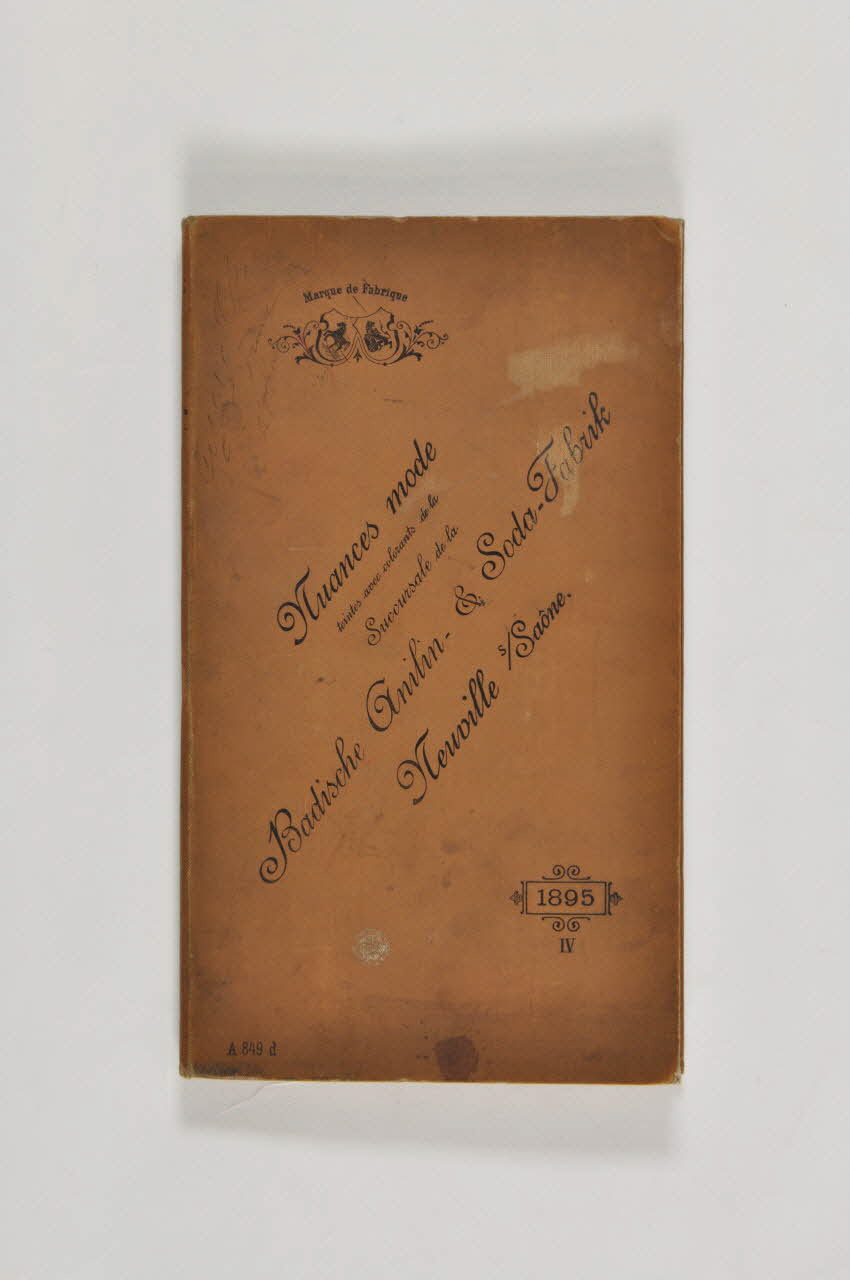 Marque de Fabrique
Nuances mode
teintes avec colorants de la
Succursale de la
Badische Anilin- & Soda-Fabrik
Neuville s/Saône.
1895
IV
A 849 d